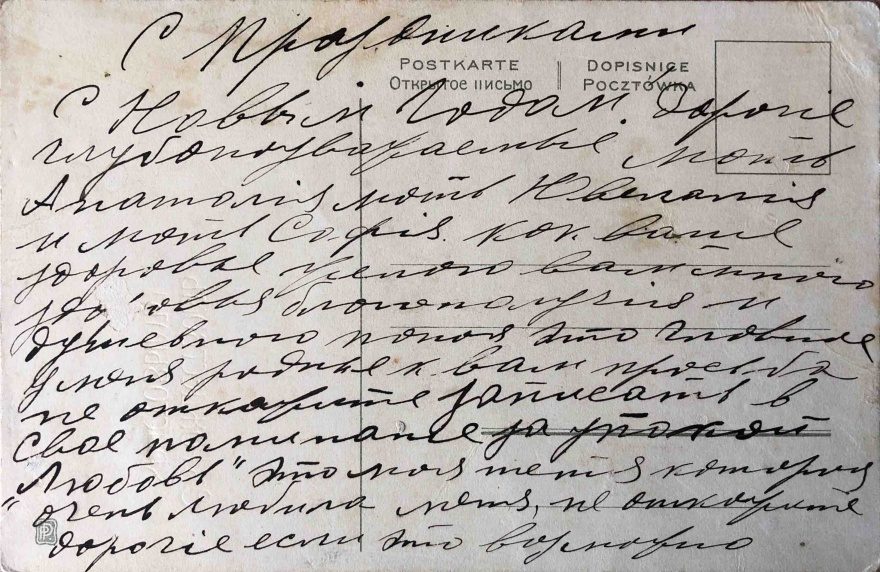 С Праздниками
POSTKARTE DOPISNICE
ОТКРЫТОЕ ПИСЬМО POCZTÓWKA
С Новым Годом! Дорогіе
глубокоуважаемые мать
Анатолія мать Ювеналія
и мать Софія. как ваше
здоровье желаю вам много
здоровья благополучія и
душевного покоя это главное
у меня родные к вам просьба
не откажите записать в
свое поминанье за упокой
"Любовь" это моя тетя которая
очень любила меня, не откажите
дорогіе если это возможно